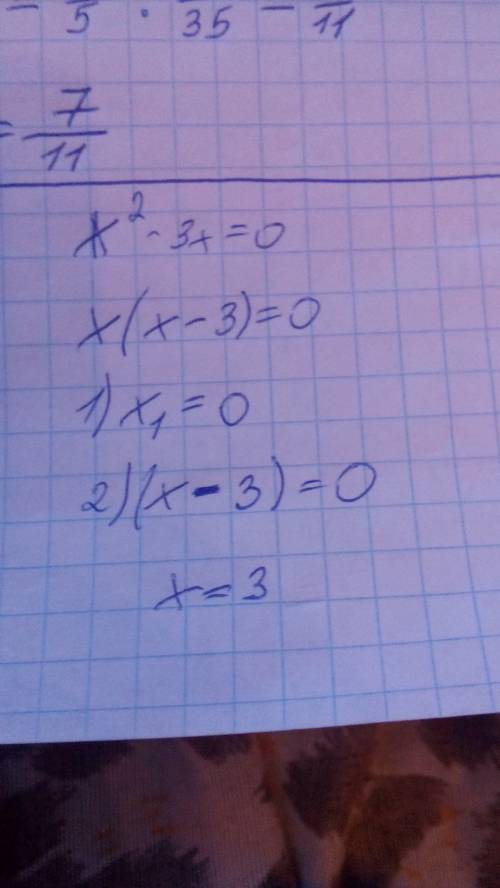 - 5 · 35 - 11
= 7/11
x² - 3x = 0
x(x - 3) = 0
1) x₁ = 0
2) (x - 3) = 0
x = 3